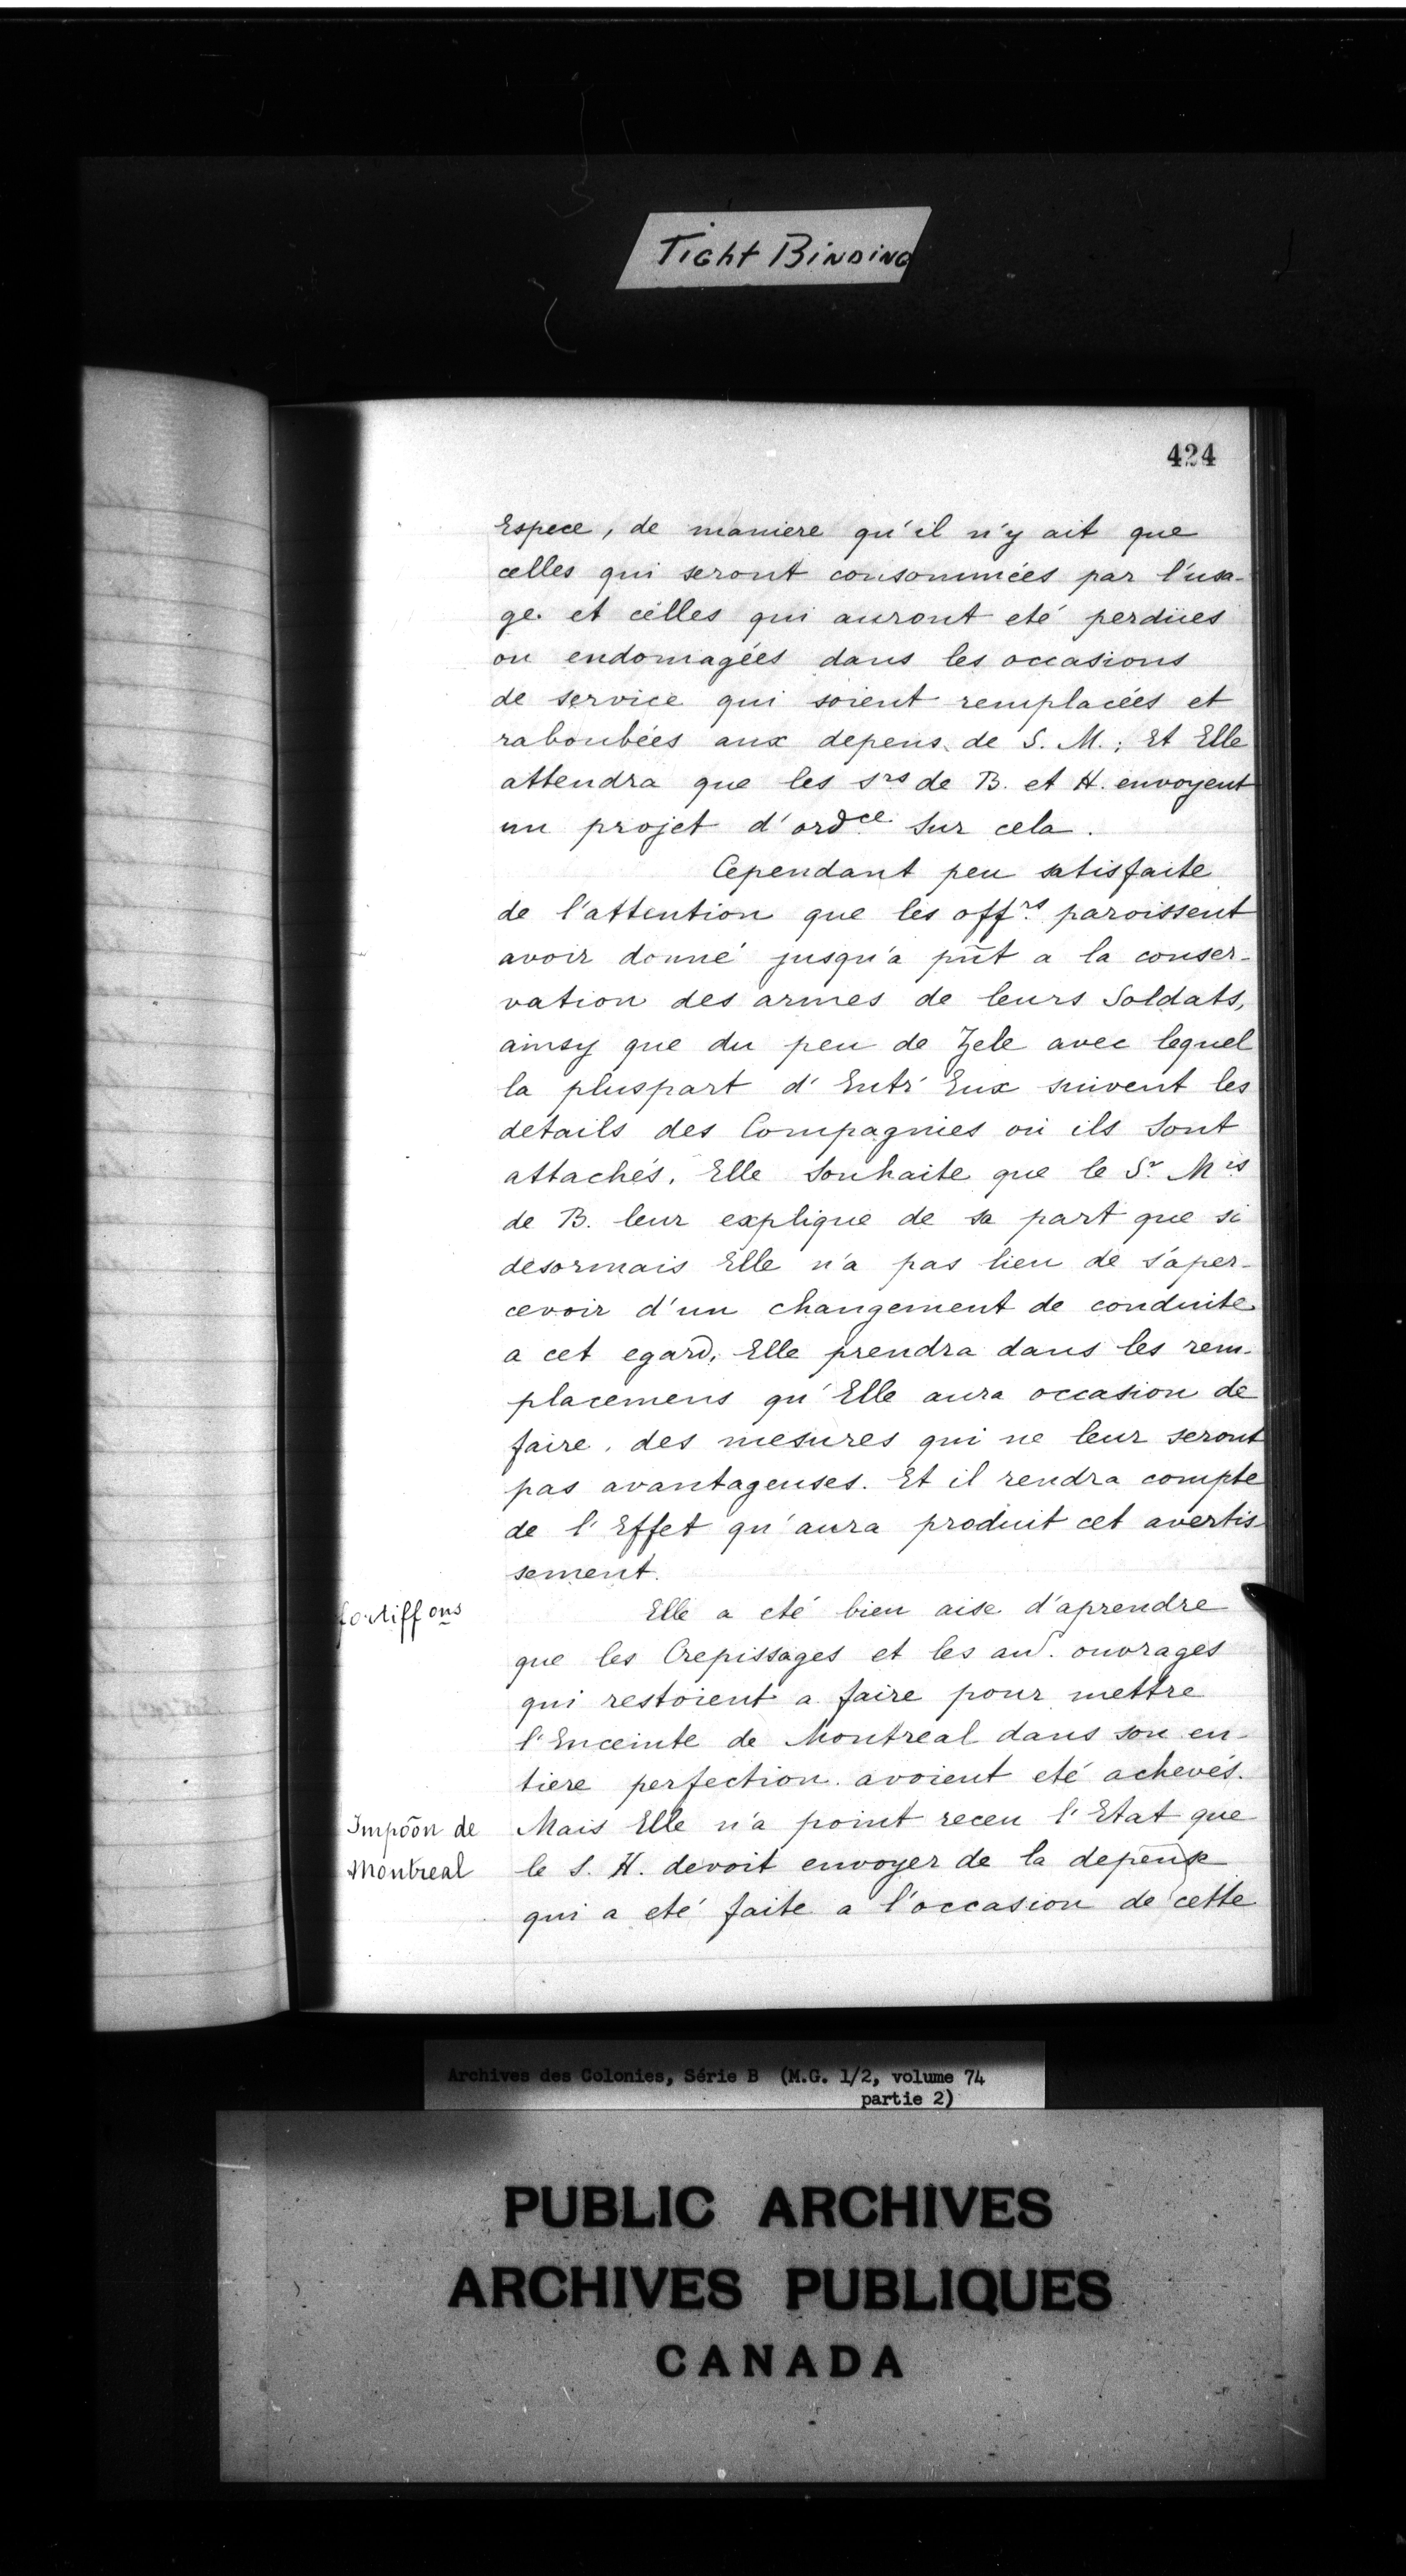 Tight Binding
424
Espece, de maniere qu'il n'y ait que
celles qui seront consommées par l'usa-
ge. et celles qui auront eté perdües
ou endomagées dans les occasions
de service qui soient remplacées et
raboubées aux depens de S. M.; Et Elle
attendra que les srs de B. et H. envoyent
un projet d'ordce sur cela.
Cependant peu satisfaite
de l'attention que les offrs paroissent
avoir donné jusqu'a pnt a la conser-
vation des armes de leurs Soldats,
ainsy que du peu de Zele avec lequel
la pluspart d'Entr'Eux suivent les
details des Compagnies où ils sont
attachés. Elle souhaite que le Sr. Mis
de B. leur explique de sa part que si
desormais Elle n'a pas lieu de s'aper-
cevoir d'un changement de conduite
a cet egard, Elle prendra dans les rem-
placemens qu'Elle aura occasion de
faire, des mesures qui ne leur seront
pas avantageuses. Et il rendra compte
de l'Effet qu'aura produit cet avertis-
sement.
fortiffons
Elle a eté bien aise d'aprendre
que les Crepissages et les au. ouvrages
qui restoient a faire pour mettre
l'Enceinte de Montreal dans son en-
tiere perfection avoient eté achevés.
Impōōn de
Montreal
Mais Elle n'a point receu l'Etat que
le S. H. devoit envoyer de la depense
qui a eté faite a l'occasion de cette
Archives des Colonies, Série B (M.G. 1/2, volume 74
partie 2)
PUBLIC ARCHIVES
ARCHIVES PUBLIQUES
CANADA